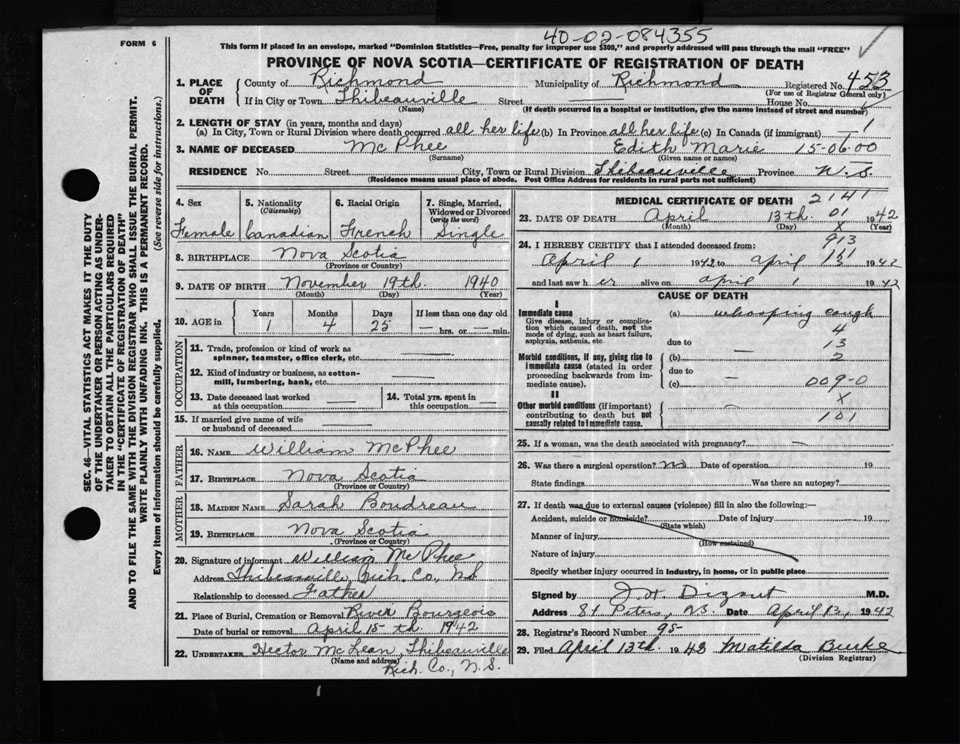 40-02-084355
FORM 6
This form if placed in an envelope, marked "Dominion Statistics—Free, penalty for improper use $300," and properly addressed will pass through the mail "FREE"
PROVINCE OF NOVA SCOTIA—CERTIFICATE OF REGISTRATION OF DEATH
SEC. 46—VITAL STATISTICS ACT MAKES IT THE DUTY
OF THE UNDERTAKER OR PERSON ACTING AS UNDER-
TAKER TO OBTAIN ALL THE PARTICULARS REQUIRED
IN THE "CERTIFICATE OF REGISTRATION OF DEATH"
AND TO FILE THE SAME WITH THE DIVISION REGISTRAR WHO SHALL ISSUE THE BURIAL PERMIT.
WRITE PLAINLY WITH UNFADING INK. THIS IS A PERMANENT RECORD.
Every item of information should be carefully supplied. (See reverse side for instructions.)
1. PLACE OF DEATH
County of Richmond Municipality of Richmond Registered No. 453
(For use of Registrar General only)
If in City or Town Thibeauville Street — House No.
(Name) (If death occurred in a hospital or institution, give the name instead of street and number)
2. LENGTH OF STAY (in years, months and days)
(a) In City, Town or Rural Division where death occurred all her life (b) In Province all her life (c) In Canada (if immigrant) — 1
3. NAME OF DECEASED McPhee Edith Marie 15-06.00
(Surname) (Given name or names)
RESIDENCE No. Street City, Town or Rural Division Thibeauville Province N.S.
(Residence means usual place of abode. Post Office Address for residents in rural parts not sufficient)
4. Sex Female
5. Nationality (Citizenship) Canadian
6. Racial Origin French
7. Single, Married, Widowed or Divorced (write the word) Single
8. BIRTHPLACE Nova Scotia
(Province or Country)
9. DATE OF BIRTH November 19th. 1940
(Month) (Day) (Year)
10. AGE in Years Months Days If less than one day old
1 4 25 — hrs. or — min.
OCCUPATION
11. Trade, profession or kind of work as spinner, teamster, office clerk, etc. —
12. Kind of industry or business, as cotton-mill, lumbering, bank, etc. —
13. Date deceased last worked at this occupation —
14. Total yrs. spent in this occupation —
15. If married give name of wife or husband of deceased —
FATHER
16. NAME William McPhee
17. BIRTHPLACE Nova Scotia
(Province or Country)
MOTHER
18. MAIDEN NAME Sarah Boudreau
19. BIRTHPLACE Nova Scotia
(Province or Country)
20. Signature of informant William McPhee
Address Thibeauville, Rich. Co., N.S
Relationship to deceased Father
21. Place of Burial, Cremation or Removal River Bourgeois
Date of burial or removal April 15 th. 1942
22. UNDERTAKER Hector McLean, Thibeauville
(Name and address) Rich. Co., N.S.
MEDICAL CERTIFICATE OF DEATH 2141
23. DATE OF DEATH April 13th. 01 1942
(Month) (Day) X (Year)
913
24. I HEREBY CERTIFY that I attended deceased from: 101
April 1 1942 to April 13 1942
and last saw her alive on April 1 1942
CAUSE OF DEATH
I
Immediate cause (a) whooping cough
Give disease, injury or complication which caused death, not the mode of dying, such as heart failure, asphyxia, asthenia, etc.
4
due to — 13
Morbid conditions, if any, giving rise to immediate cause (stated in order proceeding backwards from immediate cause).
(b) 2
due to
(c) — 009-0
II X
Other morbid conditions (if important) contributing to death but not causally related to immediate cause.
— 101
25. If a woman, was the death associated with pregnancy? —
26. Was there a surgical operation? no Date of operation 19
State findings Was there an autopsy?
27. If death was due to external causes (violence) fill in also the following:—
Accident, suicide or homicide? Date of injury 19
(State which)
Manner of injury
(How sustained)
Nature of injury
Specify whether injury occurred in industry, in home, or in public place
Signed by M.D.
Address St Peters, N.S. Date April 13, 1942
28. Registrar's Record Number 95
29. Filed April 13th. 1942 Matilda Burke
(Division Registrar)